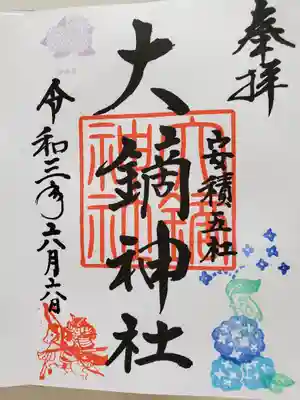 奉拝
安積五社
大鏑神社
令和三年六月六日